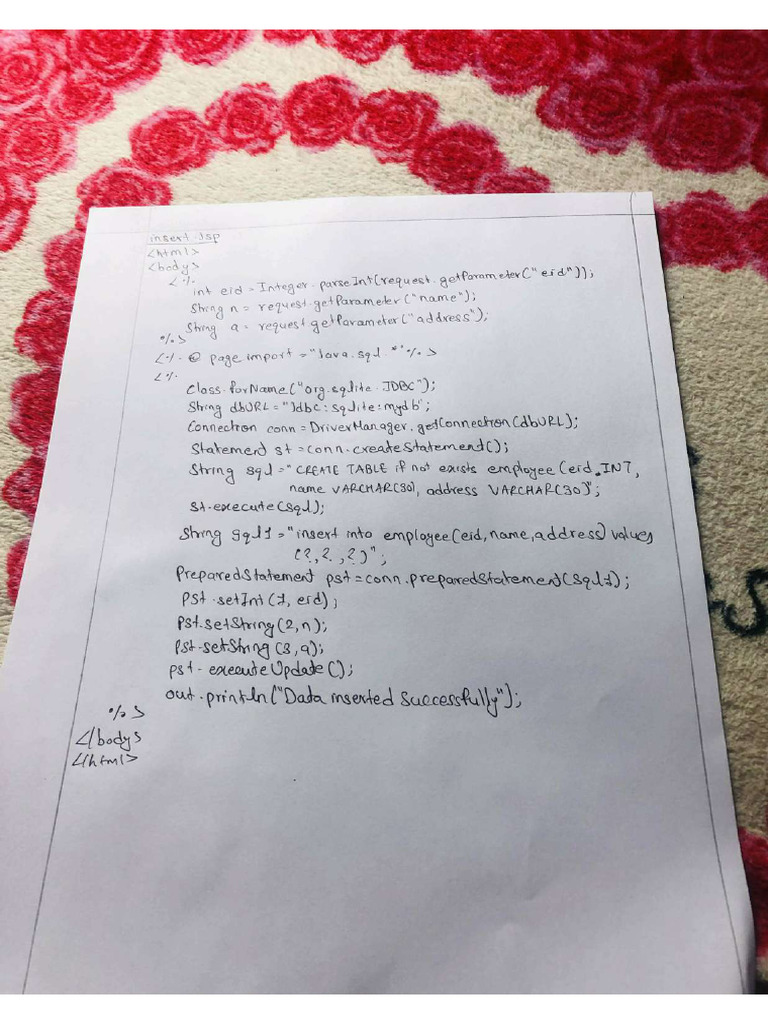 insert.Jsp
<html>
<body>
<%
int eid = Integer.parseInt(request.getParameter("eid"));
String n = request.getParameter("name");
String a = request.getParameter("address");
%>
<%@ page import = "Java.sql.*" %>
<%
Class.forName("org.sqlite.JDBC");
String dbURL = "Jdbc:sqlite:mydb";
Connection conn = DriverManager.getConnection(dbURL);
Statement st = conn.createStatement();
String sql = "CREATE TABLE if not exists employee(eid INT,
name VARCHAR(30), address VARCHAR(30)";
st.execute(sql);
String sql1 = "insert into employee(eid, name, address) values
(?, ?, ?)";
PreparedStatement pst = conn.preparedStatement(sql1);
Pst.setInt(1, eid);
Pst.setString(2, n);
Pst.setString(3, a);
pst.executeUpdate();
out.println("Data inserted Successfully");
%>
</body>
</html>